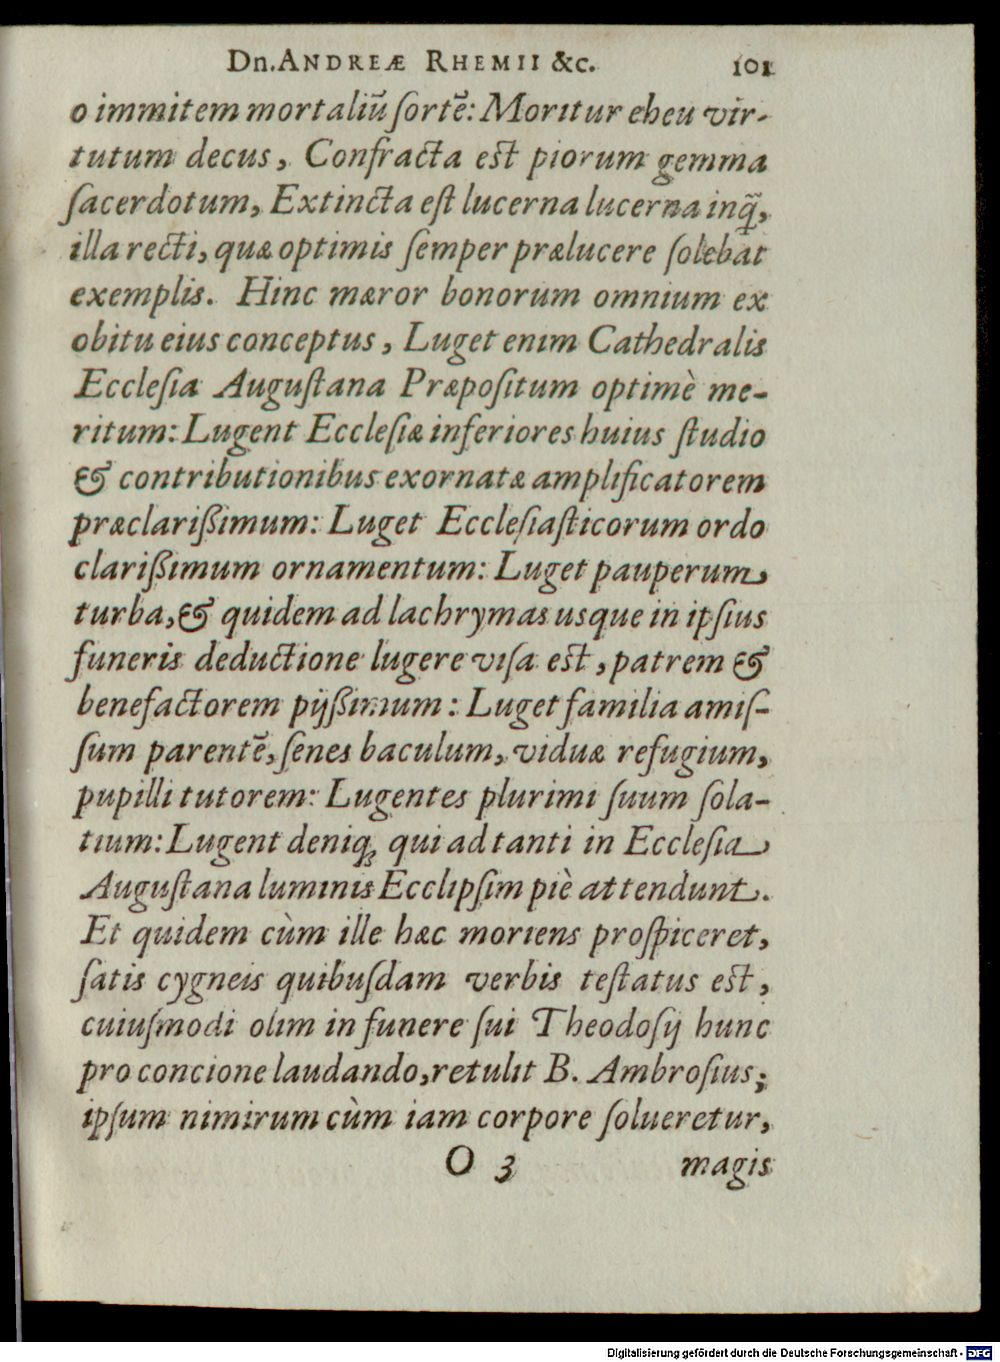 Dn. ANDREÆ RHEMII &c. 101
o immitem mortaliũ ſortẽ: Moritur eheu vir-
tutum decus, Confracta eſt piorum gemma
ſacerdotum, Extincta eſt lucerna lucerna inq̃,
illa recti, quæ optimis ſemper prælucere ſolebat
exemplis. Hinc mæror bonorum omnium ex
obitu eius conceptus, Luget enim Cathedralis
Eccleſia Auguſtana Præpoſitum optimè me-
ritum: Lugent Eccleſiæ inferiores huius ſtudio
& contributionibus exornatæ amplificatorem
præclarißimum: Luget Eccleſiaſticorum ordo
clarißimum ornamentum: Luget pauperum
turba, & quidem ad lachrymas usque in ipſius
funeris deductione lugere viſa eſt, patrem &
benefactorem pijßimum: Luget familia amiſ-
ſum parentẽ, ſenes baculum, viduæ refugium,
pupilli tutorem: Lugentes plurimi ſuum ſola-
tium: Lugent deniq; qui ad tanti in Eccleſia
Auguſtana luminis Ecclipſim piè attendunt.
Et quidem cùm ille hæc moriens proſpiceret,
ſatis cygneis quibuſdam verbis teſtatus eſt,
cuiuſmodi olim in funere ſui Theodoſij hunc
pro concione laudando, retulit B. Ambroſius;
ipſum nimirum cùm iam corpore ſolueretur,
O 3 magis
Digitalisierung gefördert durch die Deutsche Forschungsgemeinschaft - DFG